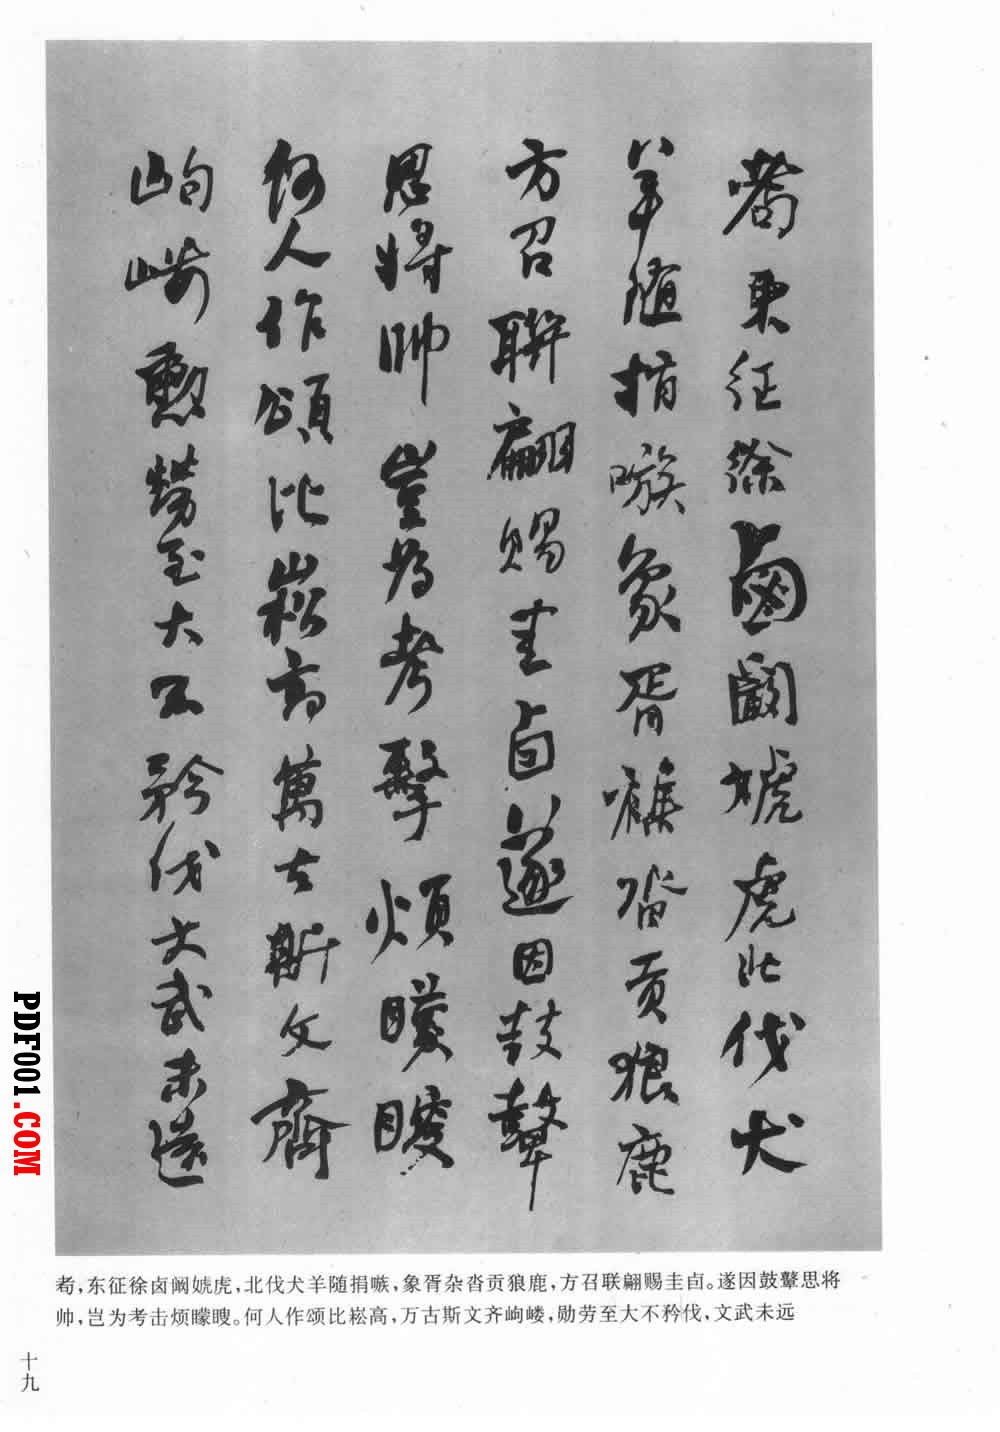 耇東征徐鹵闞虓虎北伐犬
羊隨指嗾象胥雜沓貢狼鹿
方召聯翩賜圭卣遂因鼓鼙
思將帥豈為考擊煩矇瞍
何人作頌比崧高萬古斯文齊
岣嶁勳勞至大不矜伐文武未遠
耇，东征徐卤阚虓虎，北伐犬羊随捐嗾，象胥杂沓贡狼鹿，方召联翩赐圭卣。遂因鼓鼙思将
帅，岂为考击烦矇瞍。何人作颂比崧高，万古斯文齐岣嵝，勋劳至大不矜伐，文武未远
十九
PDF001.COM